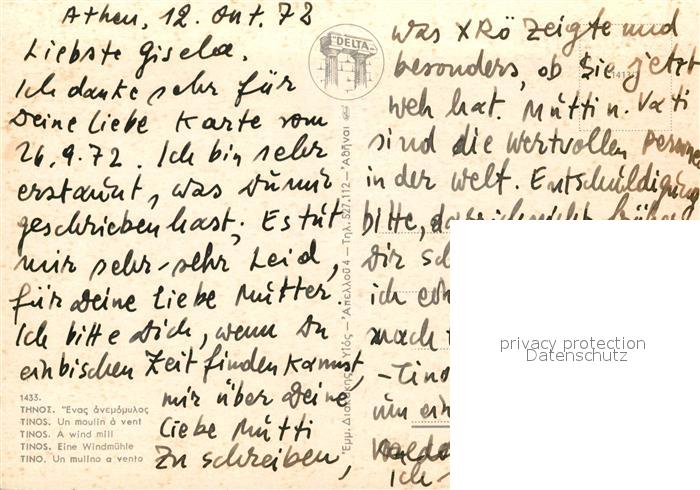 Athen, 12. Okt. 72
Liebste Gisela.
Ich danke sehr für
Deine liebe Karte vom
26.9.72. Ich bin sehr
erstaunt, was Du mir
geschrieben hast; Es tut
mir sehr-sehr Leid,
für Deine liebe Mutter.
Ich bitte Dich, wenn Du
ein bischen Zeit finden kannst,
mir über Deine
liebe Mutti
zu schreiben,
1433.
ΤΗΝΟΣ. Ἕνας ἀνεμόμυλος
TINOS. Un moulin à vent
TINOS. A wind mill
TINOS. Eine Windmühle
TINO. Un mulino a vento
DELTA
Ἀπελλοῦ 4 — Τηλ. 527.112 — Ἀθῆναι
was XRö zeigte und
besonders, ob Sie jetzt
weh hat. Mutti u. Vati
sind die wertvollen Persone
in der Welt. Entschuldigung
bitte, dass ich nicht früher
Dir
ich
nach
-Tino
um ein
Ich-
privacy protection
Datenschutz